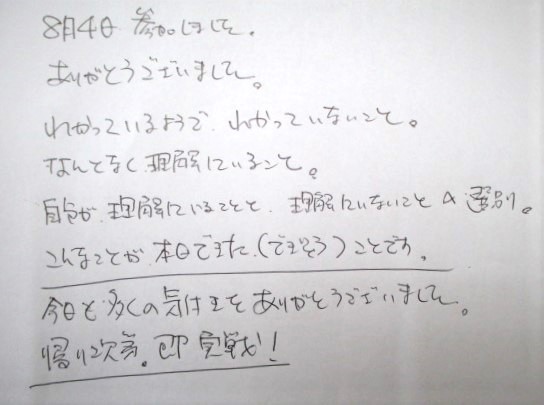 8月4日 参加しました。
ありがとうございました。
わかっているようで、わかっていないこと。
なんとなく理解していること。
自分が、理解していることと、理解していないことの選別。
こんなことが、本日できた、(できそう)ことです。
今日も多くの気付きをありがとうございました。
帰り次第、即実戦!